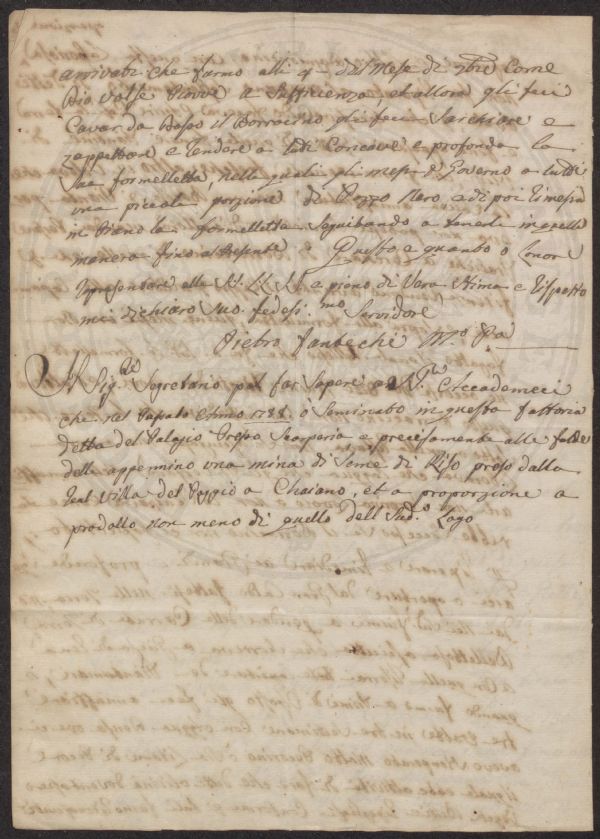 arrivati che furno alli 4 del Mese di 7bre Come
Dio volse Piovve a Sufficienza et allora gli feci
Cavar da Basso il Borraccino gli feci Sarchiare e
zappettare e Tendere a tutti Concave e profonde la
Sua formelletta, nelle quali gli messi di Governo a tutti
una piccola porzione di Pozzo Nero, e di poi Rimessi
in Piano la formelletta Seguitando a tenerle in quella
maniera fino al Presente e Questo e quanto o L'onore
Ripresentare alle SS. LL. e pieno di Vera Stima e Rispetto
mi dichiaro Suo fedeliss.mo Servidore
Pietro Fantechi M.o Pa
Il Sig.re Segretario pol far Sapere a S.ri Accademici
che nel Passato Anno 1788. o Seminato in questa fattoria
detta del Palagio Presso Scarperia, e precisamente alle falde
delle appennino una mina di Seme di Riso preso dalla
Real Villa del Poggio a Chaiano, et a proporzione a
prodotto non meno di quello dell Sud.o Logo